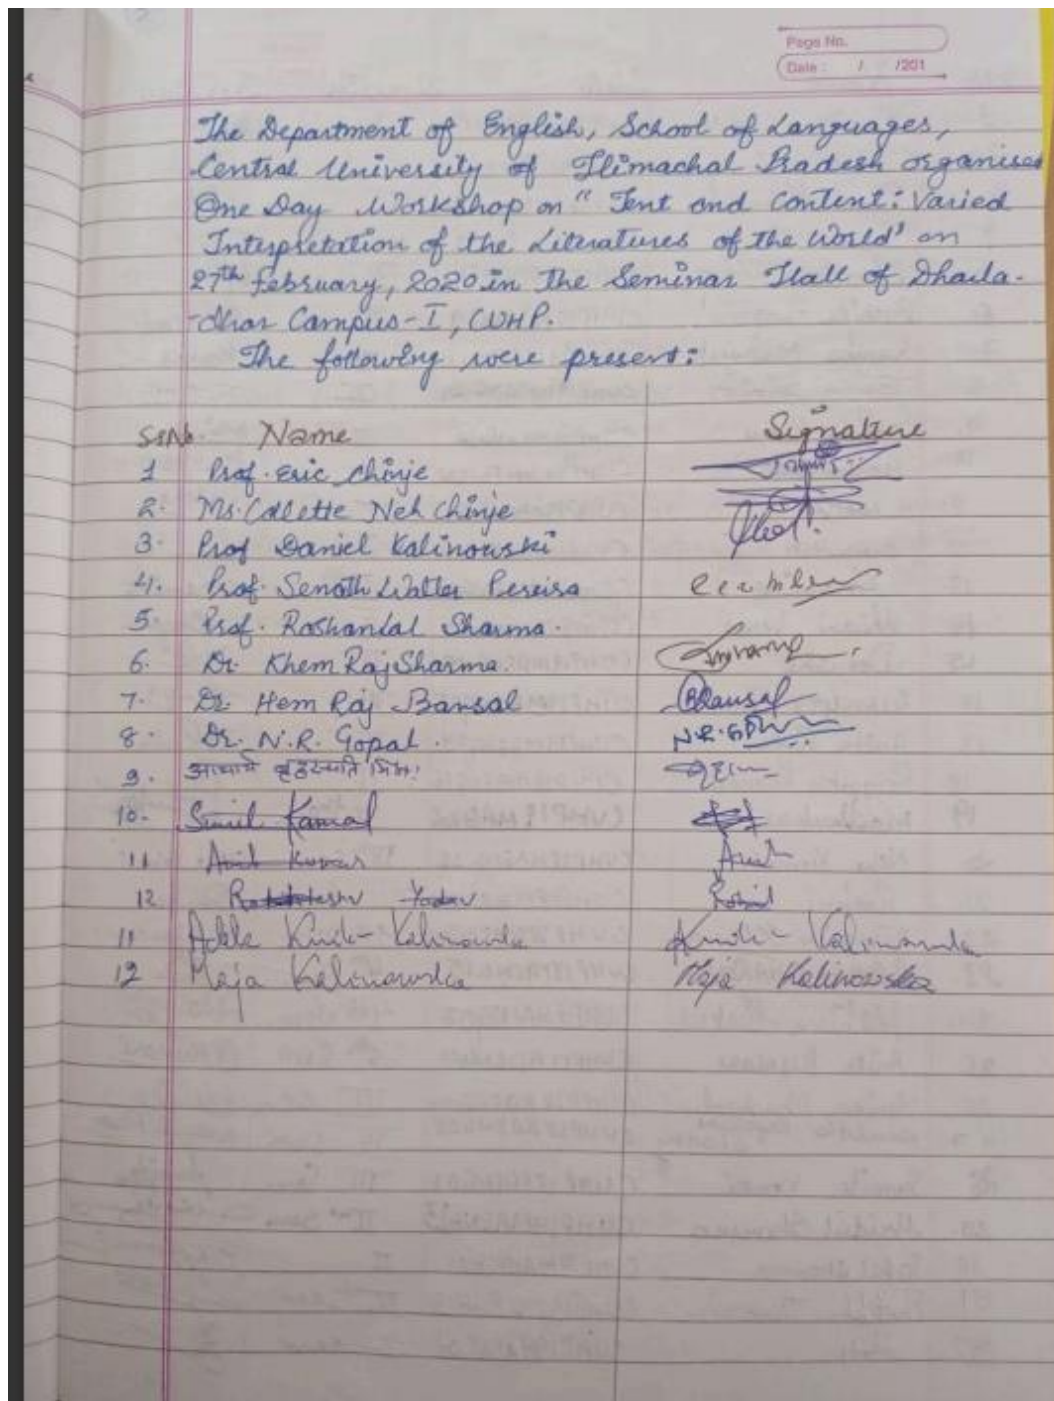 Page No.
Date : / /201
The Department of English, School of Languages,
Central University of Himachal Pradesh organised
One Day Workshop on " Text and Content: Varied
Interpretation of the Literatures of the World" on
27th February, 2020 in The Seminar Hall of Dhaula-
dhar Campus-I, CUHP.
The following were present:
Sr.No Name Signature
1 Prof. Eric Chinje
2. Ms. Collette Neh Chinje
3. Prof Daniel Kalinowski
4. Prof. Senath Walter Pereira
5. Prof. Roshanlal Sharma.
6. Dr. Khem Raj Sharma.
7. Dr. Hem Raj Bansal BRansal
8. Dr. N.R. Gopal. N.R. Gopal
9. आचार्य बृहस्पति मिश्र
10. Sunil Kamal
11 Amit Kumar Amit
12 Yadav
11 Kalinowska Kalinowska
12 Maja Kalinowska Maja Kalinowska